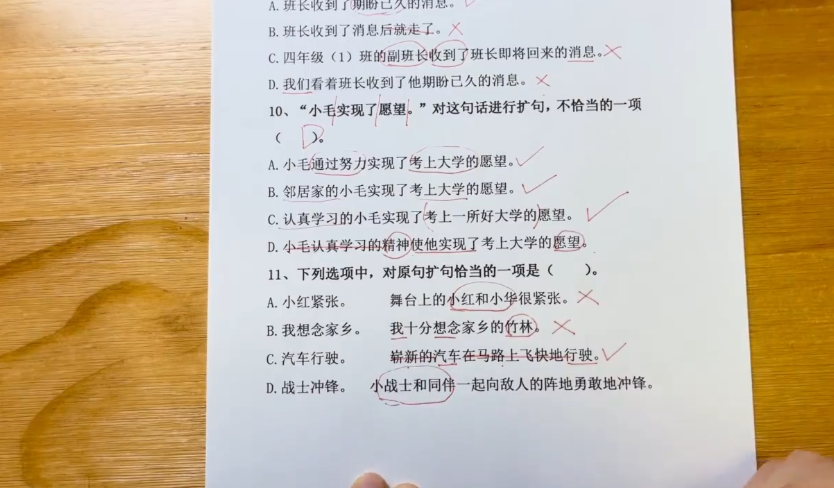 A. 班长收到了期盼已久的消息。
B. 班长收到了消息后就走了。
C. 四年级（1）班的副班长收到了班长即将回来的消息。
D. 我们看着班长收到了他期盼已久的消息。
10、“小毛实现了愿望。”对这句话进行扩句，不恰当的一项
（ D ）。
A. 小毛通过努力实现了考上大学的愿望。
B. 邻居家的小毛实现了考上大学的愿望。
C. 认真学习的小毛实现了考上一所好大学的愿望。
D. 小毛认真学习的精神使他实现了考上大学的愿望。
11、下列选项中，对原句扩句恰当的一项是（　　）。
A. 小红紧张。　　舞台上的小红和小华很紧张。
B. 我想念家乡。　　我十分想念家乡的竹林。
C. 汽车行驶。　　崭新的汽车在马路上飞快地行驶。
D. 战士冲锋。　　小战士和同伴一起向敌人的阵地勇敢地冲锋。